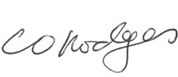 CO Hodges